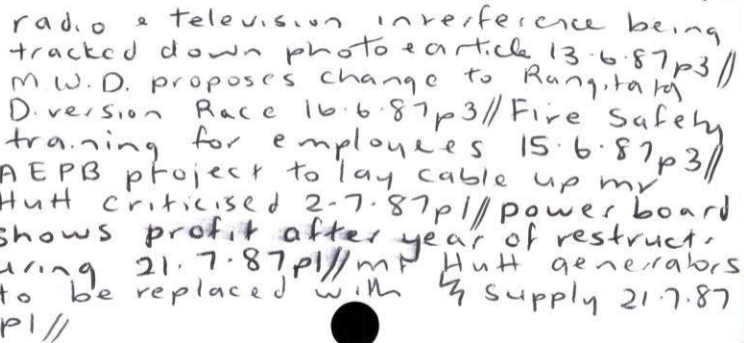 radio & television inteference being
tracked down photo & article 13.6.87p3//
M.W.D. proposes change to Rangitata
Diversion Race 16.6.87p3//Fire Safety
training for employees 15.6.87p3//
AEPB project to lay cable up mt
Hutt criticised 2.7.87p1//power board
shows profit after year of restruct-
uring 21.7.87p1//mt Hutt generators
to be replaced with supply 21.7.87
p1//